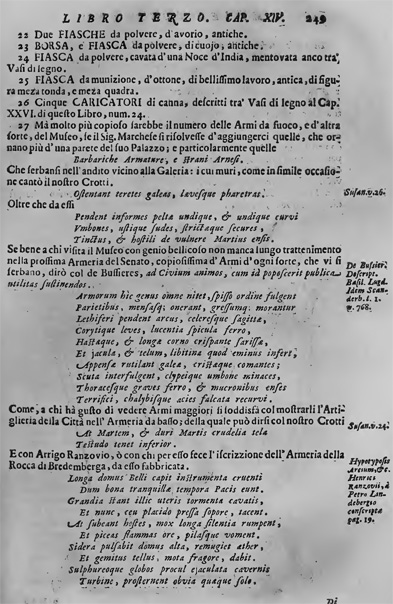 LIBRO TERZO. CAP. XIV. 249
22 Due FIASCHE da polvere, d'avorio, antiche.
23 BORSA, e FIASCA da polvere, di cuojo, antiche.
24 FIASCA da polvere, cavata d'una Noce d'India, mentovata anco trà
Vasi di legno.
25 FIASCA da munizione, d'ottone, di bellissimo lavoro, antica, di figu-
ra meza tonda, e meza quadra.
26 Cinque CARICATORI di canna, descritti trà Vasi di legno al Cap.
XXVI. di questo Libro, num. 24.
27 Mà molto più copioso sarebbe il numero delle Armi da fuoco, e d'altra
sorte, del Museo, se il Sig. Marchese si risolvesse d'aggiungerci quelle, che or-
nano più d'una parete del suo Palazzo; e particolarmente quelle
Barbariche Armature, e strani Arnesi.
Che serbansi nell'andito vicino alla Galeria: i cui muri, come in simile occasio-
ne cantò il nostro Crotti.
Ostentant teretes galeas, lævesque pharetras.
Susan. v. 26.
Oltre che da essi
Pendent informes pelta undique, & undique curvi
Vmbones, ustique sudes, strictaque secures,
Tinctus, & hostili de vulnere Martius ensis.
Se bene a chi visita il Museo con genio bellicoso non manca lungo trattenimento
nella prossima Armeria del Senato, copiosissima d'Armi d'ogni sorte, che vi si
serbano, dirò col de Bussieres, ad Civium animos, cum id poposcerit publica
utilitas sustinendos.
De Bussier.
Descript.
Basil. Lugd.
Idem Scan-
derb. l. 1.
v. 768.
Armorum hic genus omne nitet, spisso ordine fulgent
Parietibus, mensasq; onerant, gressumq; morantur
Lethiferi pendent arcus, celeresque sagittæ,
Corytique leves, lucentia spicula ferro,
Hastæque, & longæ corno crispante sarissæ,
Et jacula, & telum, libitina quod eminus infert,
Appensæ rutilant galeæ, cristæque comantes;
Scuta interfulgent, clypeique umbone minaces,
Thoracesque graves ferro, & mucronibus enses
Terrifici, chalybisque acies falcata recurvi.
Come, a chi hà gusto di vedere Armi maggiori si soddisfà col mostrarli l'Arti-
glieria della Città nell'Armeria da basso; della quale può dirsi col nostro Crotti
At Martem, & duri Martis crudelia tela
Testudo tenet inferior.
Susan. v. 24.
E con Arrigo Ranzovio, ò con chi per esso fece l'iscrizzione dell'Armeria della
Rocca di Bredemberga, da esso fabbricata.
Hypotyposis
Arcium, &c.
Henrico
Ranzovii, à
Petro Lin-
debergio
conscripta
pag. 19.
Longa domus Belli capit instrumenta cruenti
Dum bona tranquillæ tempora Pacis eunt.
Grandia stant illic uteris tormenta cavatis,
Et nunc, ceu placido pressa sopore, tacent.
At subeant hostes, mox longa silentia rumpent,
Et piceas flammas ore, pilasque voment.
Sidera pulsabit domus alta, remugiet æther,
Et gemitus tellus, mota fragore, dabit.
Sulphureoque globos procul ejaculata cavernis
Turbine, prosternent obvia quæque solo.
Di